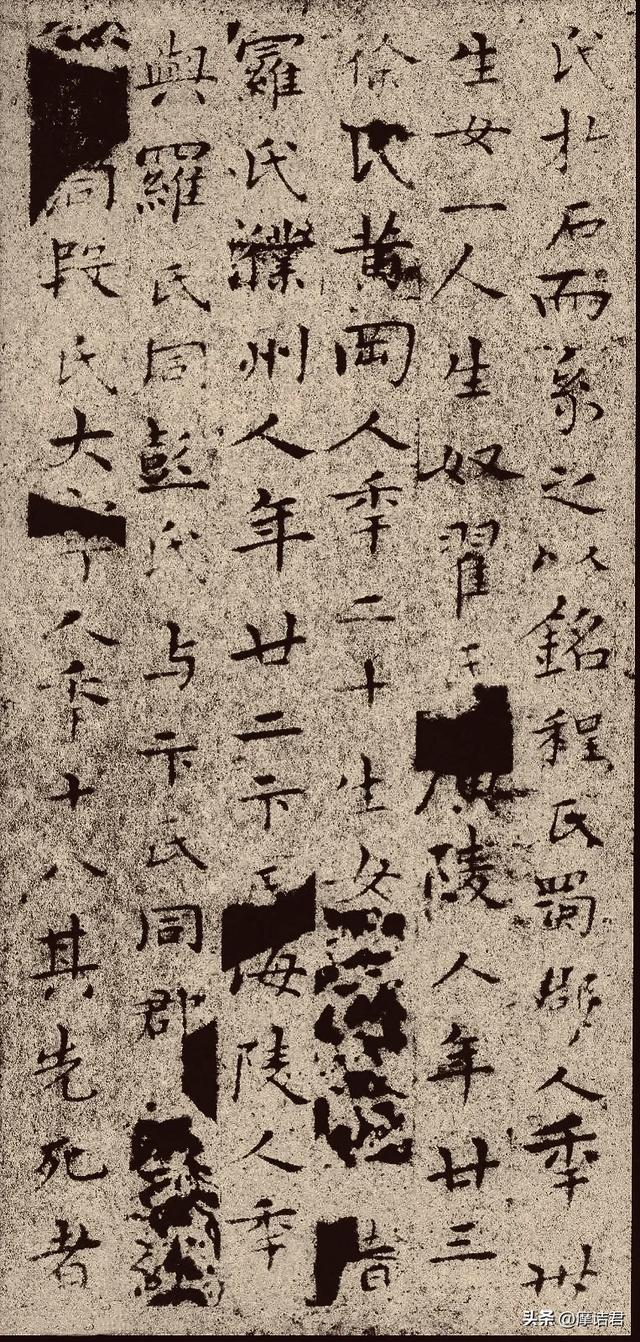 氏於石而系之以銘程氏蜀郡人年卅
生女一人生奴翟氏海陵人年廿三
徐氏黄岡人年二十生女
羅氏濮州人年廿二卞氏海陵人年
與羅氏同彭氏与卞氏同郡
同段氏大寧人年十八其先死者
头条 @摩诘君